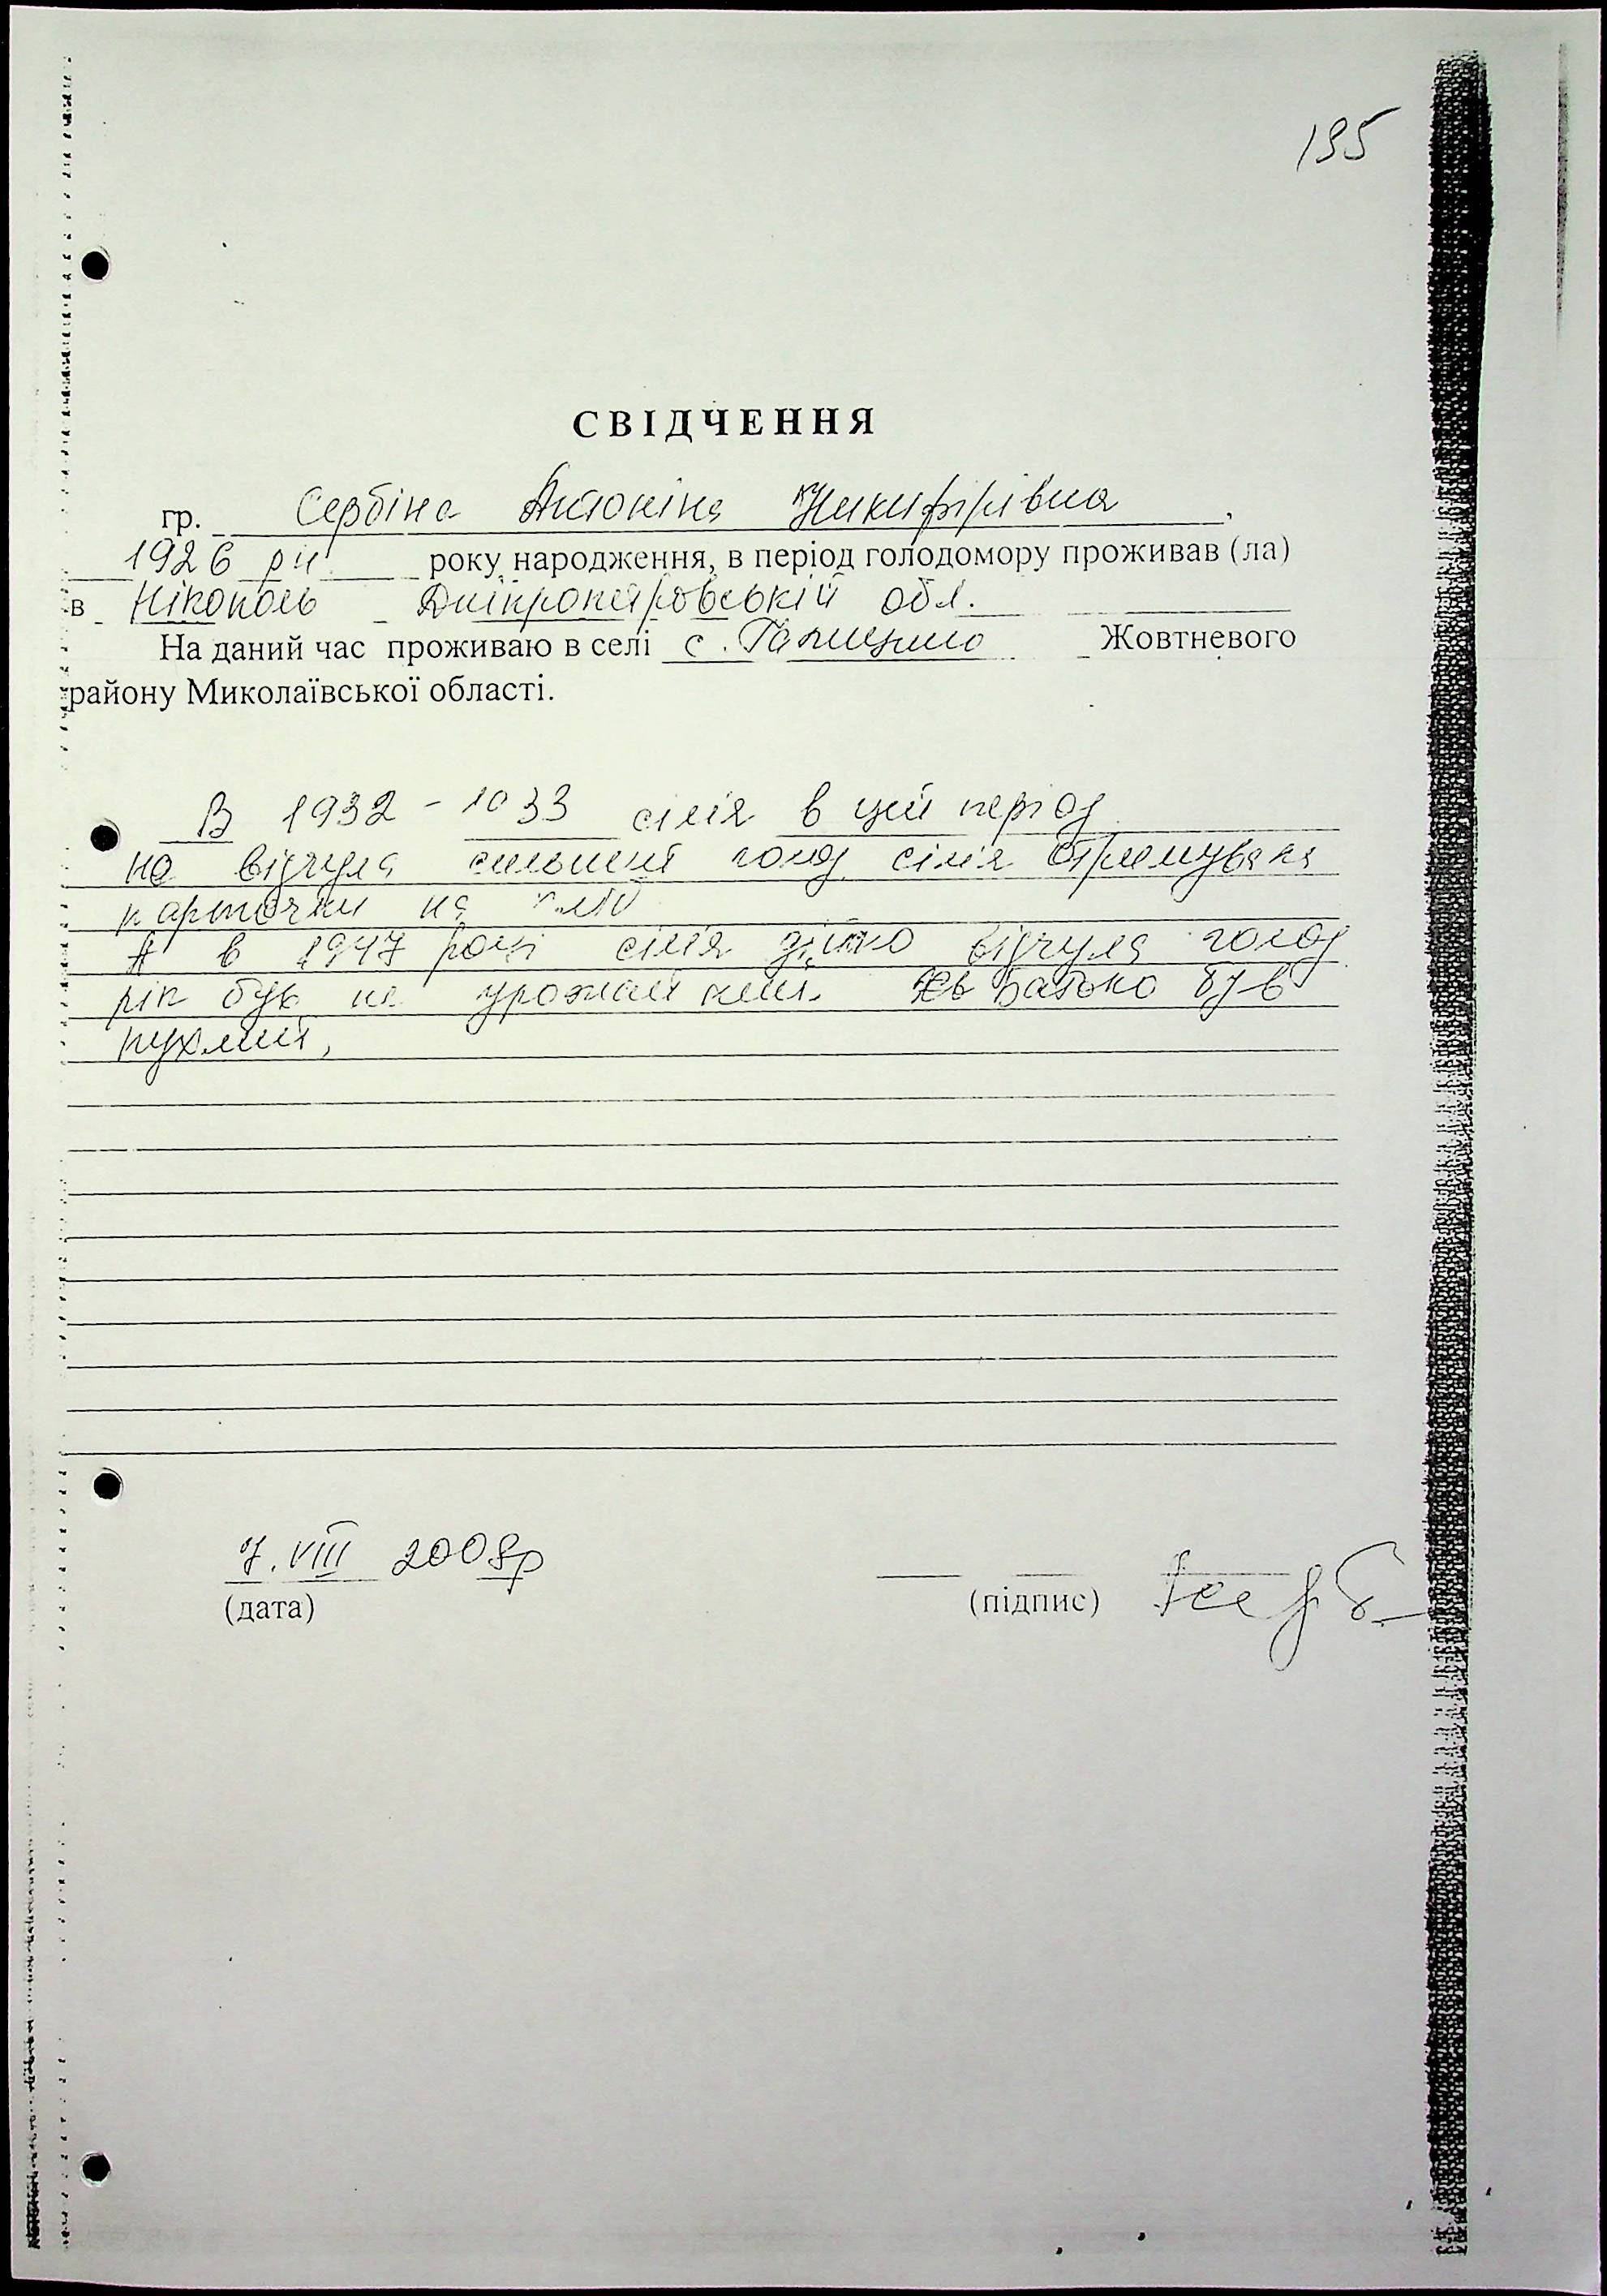 195
СВІДЧЕННЯ
гр. Сербіна Антоніна Никифірівна,
1926 рн року народження, в період голодомору проживав (ла)
в Нікополь Дніпропетровській обл.
На даний час проживаю в селі с. Галицино Жовтневого
району Миколаївської області.
В 1932 - 1933 сімія в цей період
не відчула сильний голод сімія отримувала
карточки на хліб
А в 1947 році сімія дійсно відчула голод
рік був не урожай ний. Батько був
пухлий,
7. VIII 2008р
(дата)
(підпис) Серб